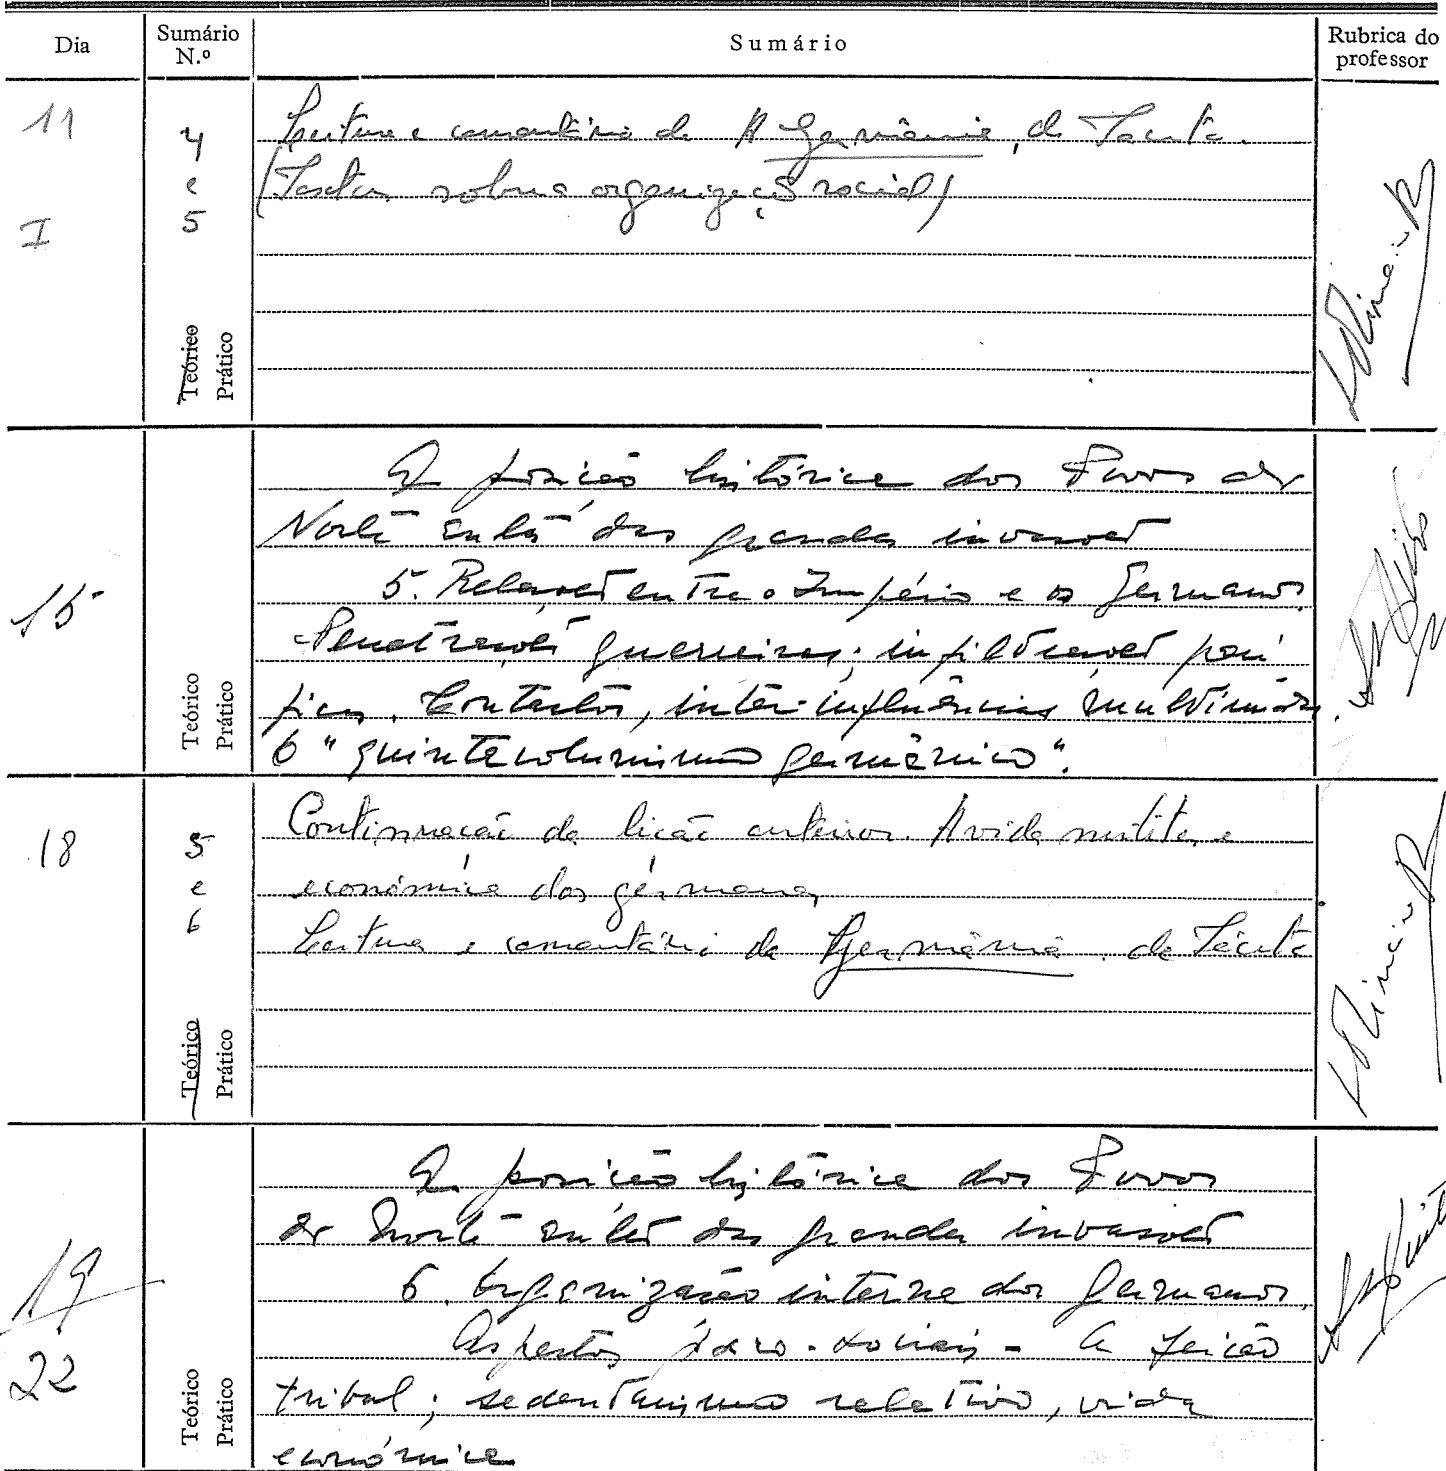 Dia
Sumário N.º
Sumário
Rubrica do professor
11
I
4
e
5
Teórico
Prático
Leitura e comentário de A Germânia, de Tácito.
(Textos sobre a organização social)
15
Teórico
Prático
A posição histórica dos Povos do
Norte antes das grandes invasões
5. Relações entre o Império e os Germanos.
Penetrações guerreiras; infiltrações pací-
ficas. Contactos, inter-influências
O "quintacolunismo germânico".
18
5
e
6
Teórico
Prático
Continuação da lição anterior. A vida militar e
económica dos germanos
Leitura e comentário da Germânia de Tácito
19
22
Teórico
Prático
A posição histórica dos Povos
do Norte antes das grandes invasões
6. Organização interna dos Germanos.
Aspectos sociais - A feição
tribal; sedentarismo relativo, vida
económica